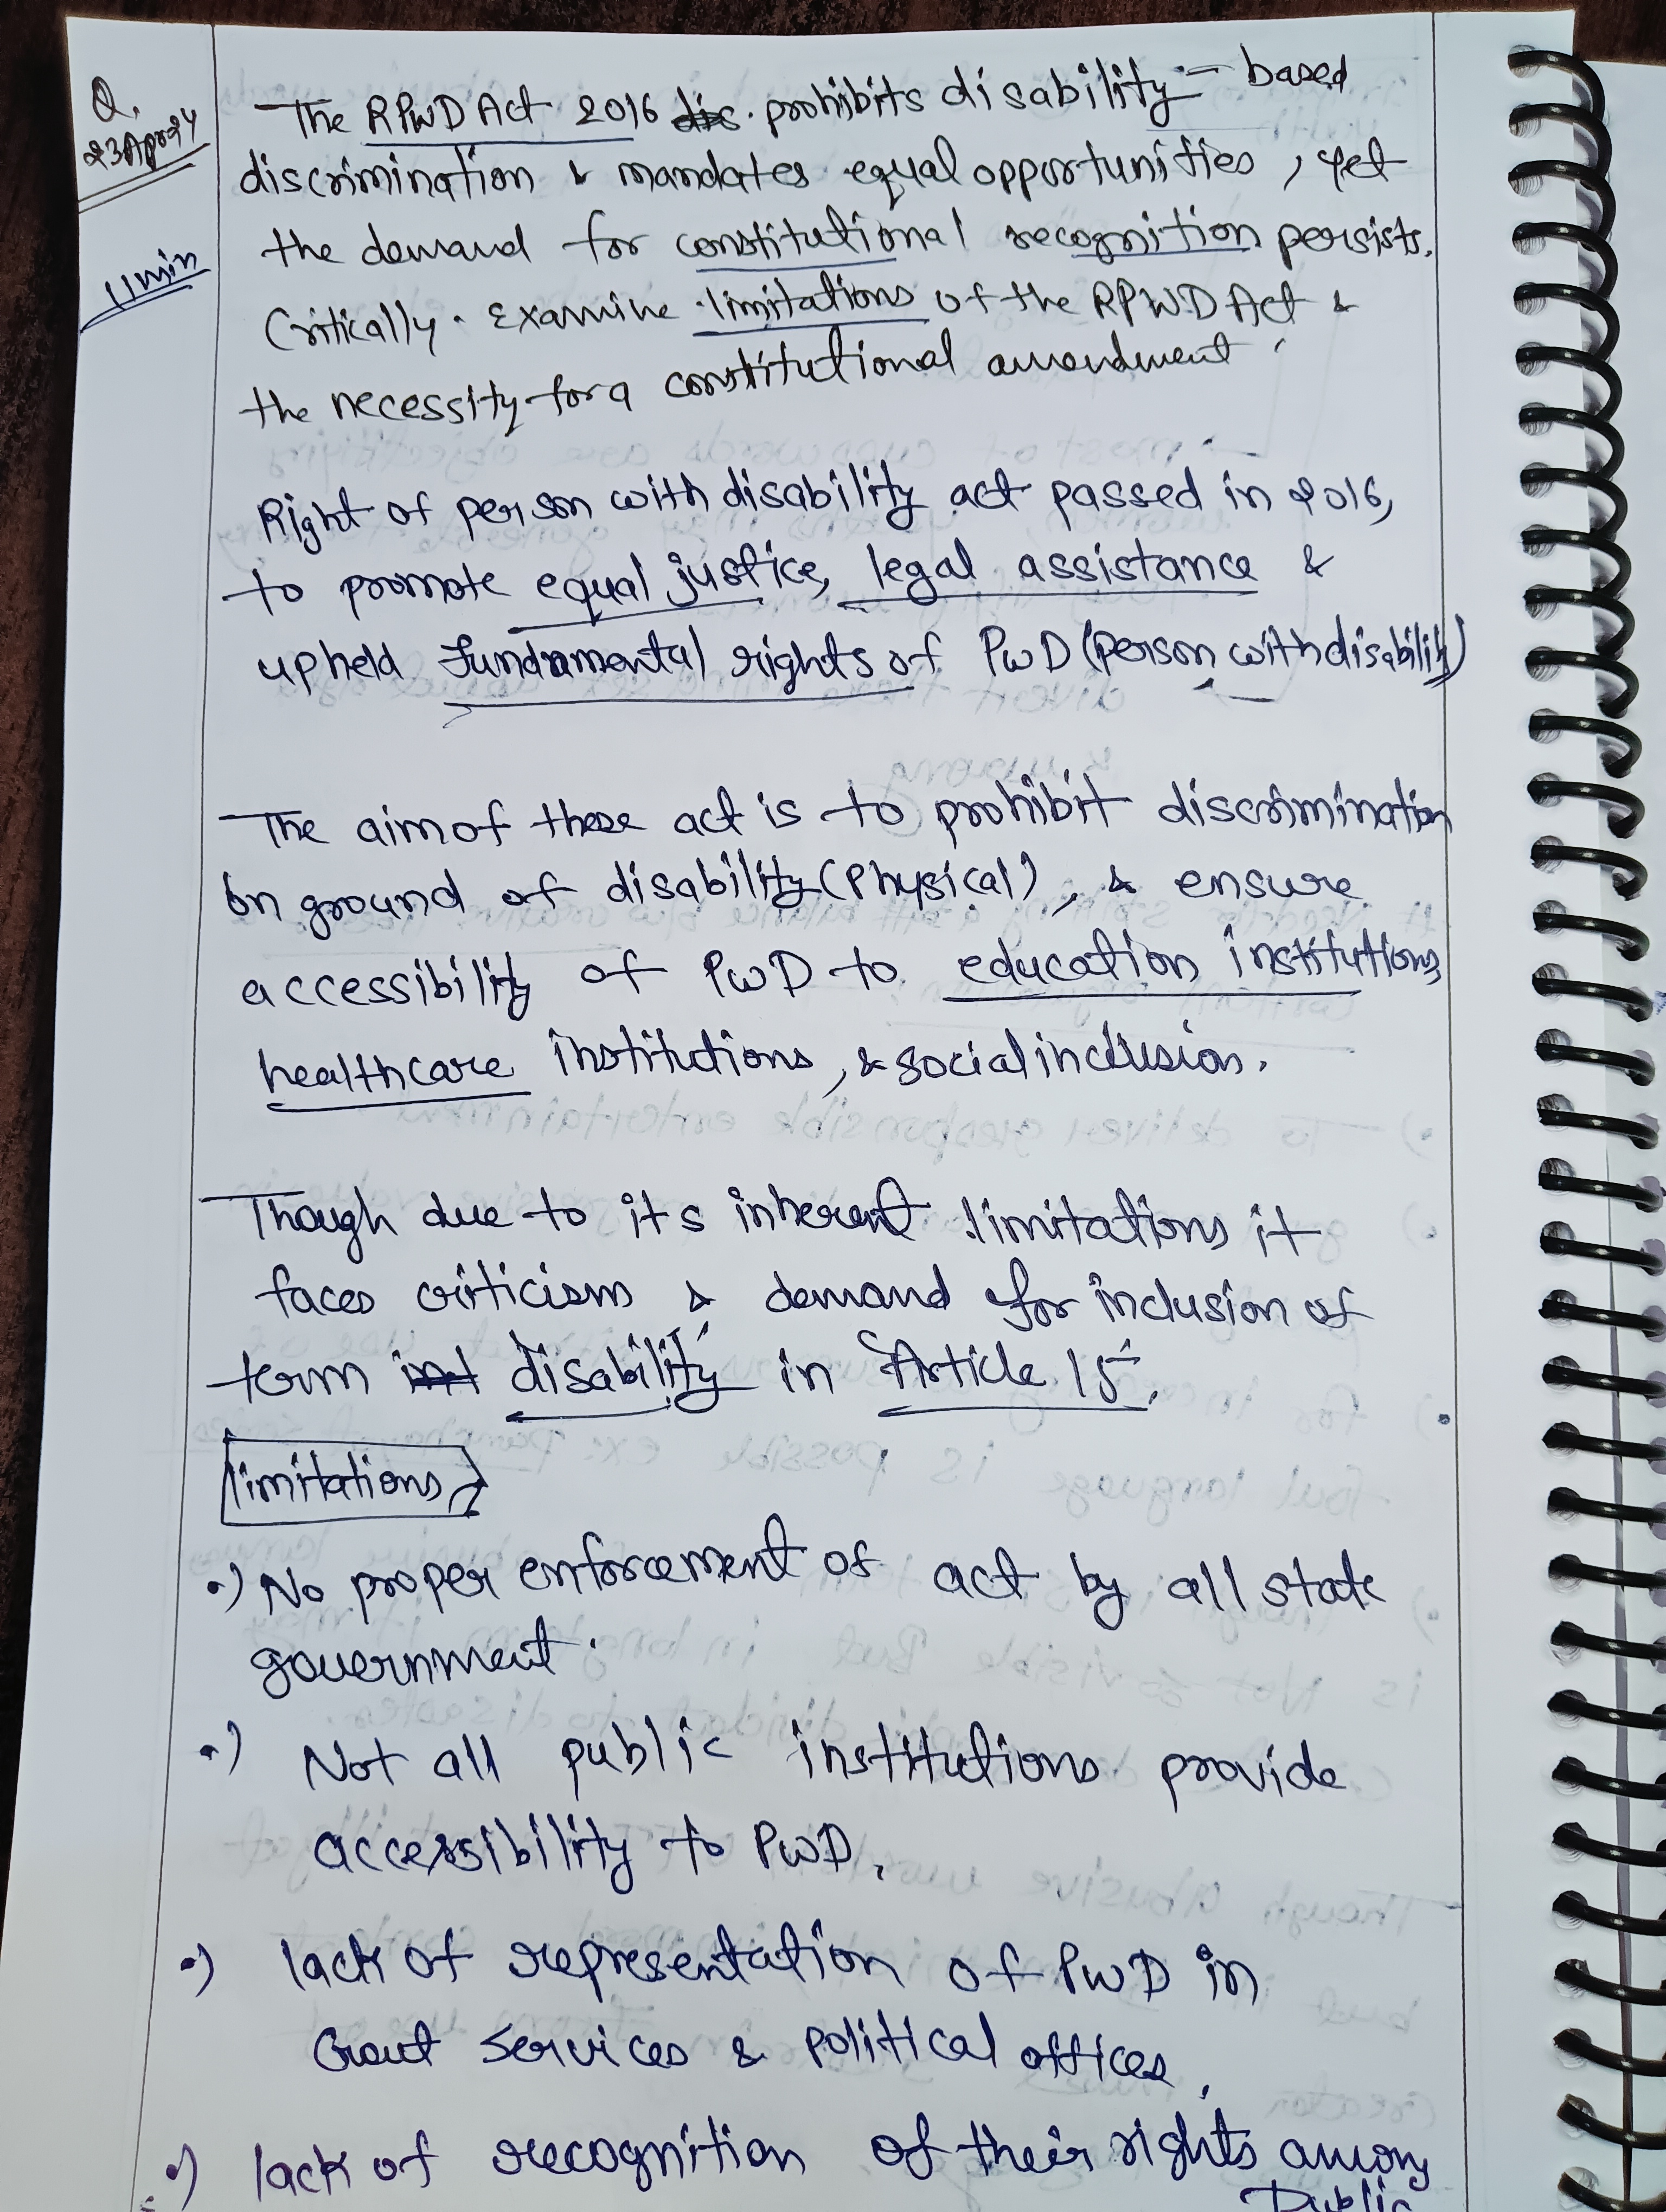 Q.
23Apr24
11min
The RPWD Act 2016 prohibits disability - based
discrimination & mandates equal opportunities, yet
the demand for constitutional recognition persists.
Critically. Examine limitations of the RPWD Act &
the necessity for a constitutional amendment.
Right of person with disability act passed in 2016,
to promote equal justice, legal assistance &
upheld fundamental rights of PwD (person with disability)
The aim of these act is to prohibit discrimination
on ground of disability (Physical), & ensure
accessibility of PwD to education institutions,
healthcare institutions, & social inclusion.
Though due to its inherent limitations it
faces criticism & demand for inclusion of
term disability in Article 15.
limitations
•) No proper enforcement of act by all state
government.
•) Not all public institutions provide
accessibility to PwD.
•) lack of representation of PwD in
Govt services & political offices.
•) lack of recognition of their rights among
Public